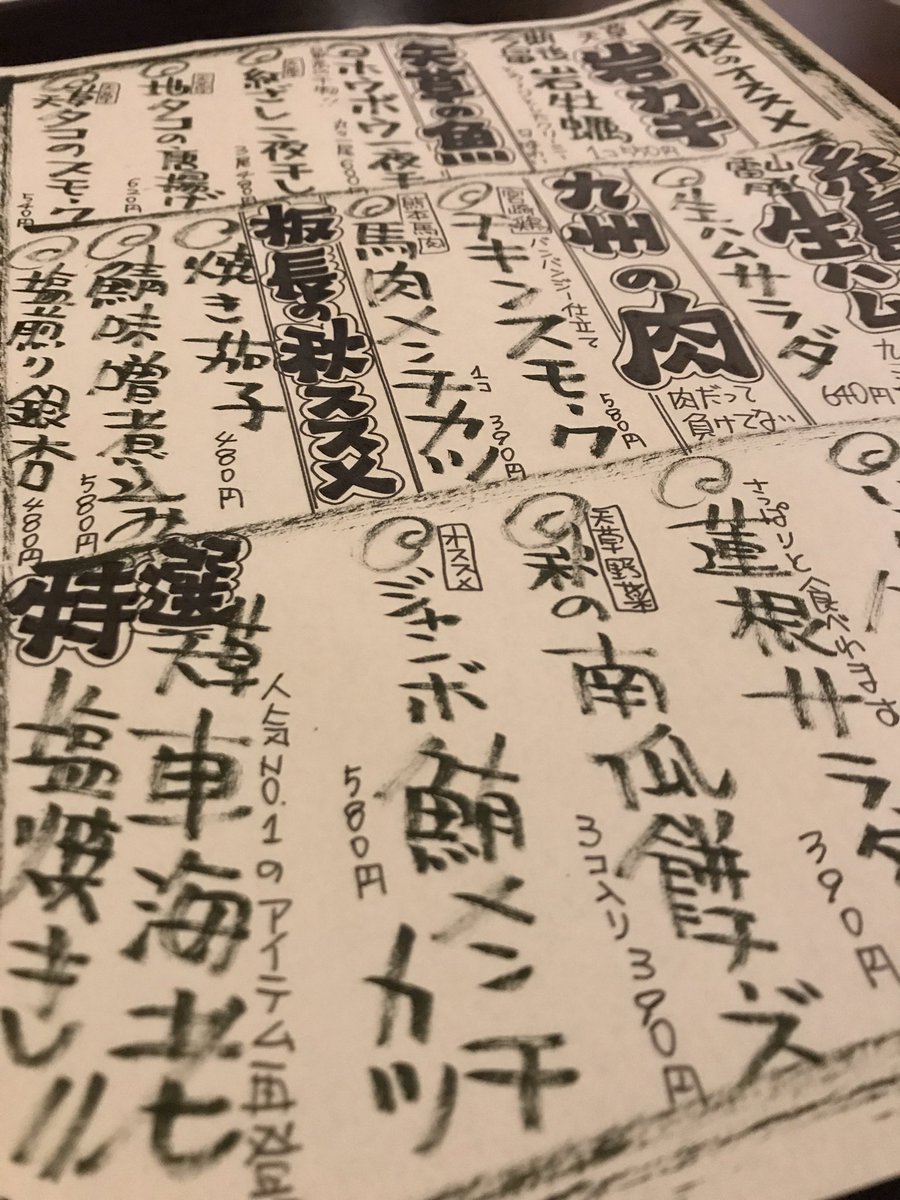 今夜のオススメ
天草
岩カキ
岩牡蠣
天草の魚
ホウボウ一夜干
一夜干し
地タコの唐揚げ
タコのスモーク
糸島
生ハム
生ハムサラダ
640円
九州の肉
肉だって
負けてない
宮崎鶏
バンバンジー仕立て
チキンスモーク
580円
熊本馬肉
馬肉メンチカツ
1コ
390円
板長の秋ススメ
焼き茄子
480円
鯖味噌煮込み
580円
塩煎り銀杏
480円
さっぱりと食べれます
蓮根サラダ
390円
天草野菜
秋の南瓜餅チーズ
3コ入り 390円
オススメ
ジャンボ鮪メンチカツ
580円
特選
人気NO.1のアイテム再登
車海老
塩焼き